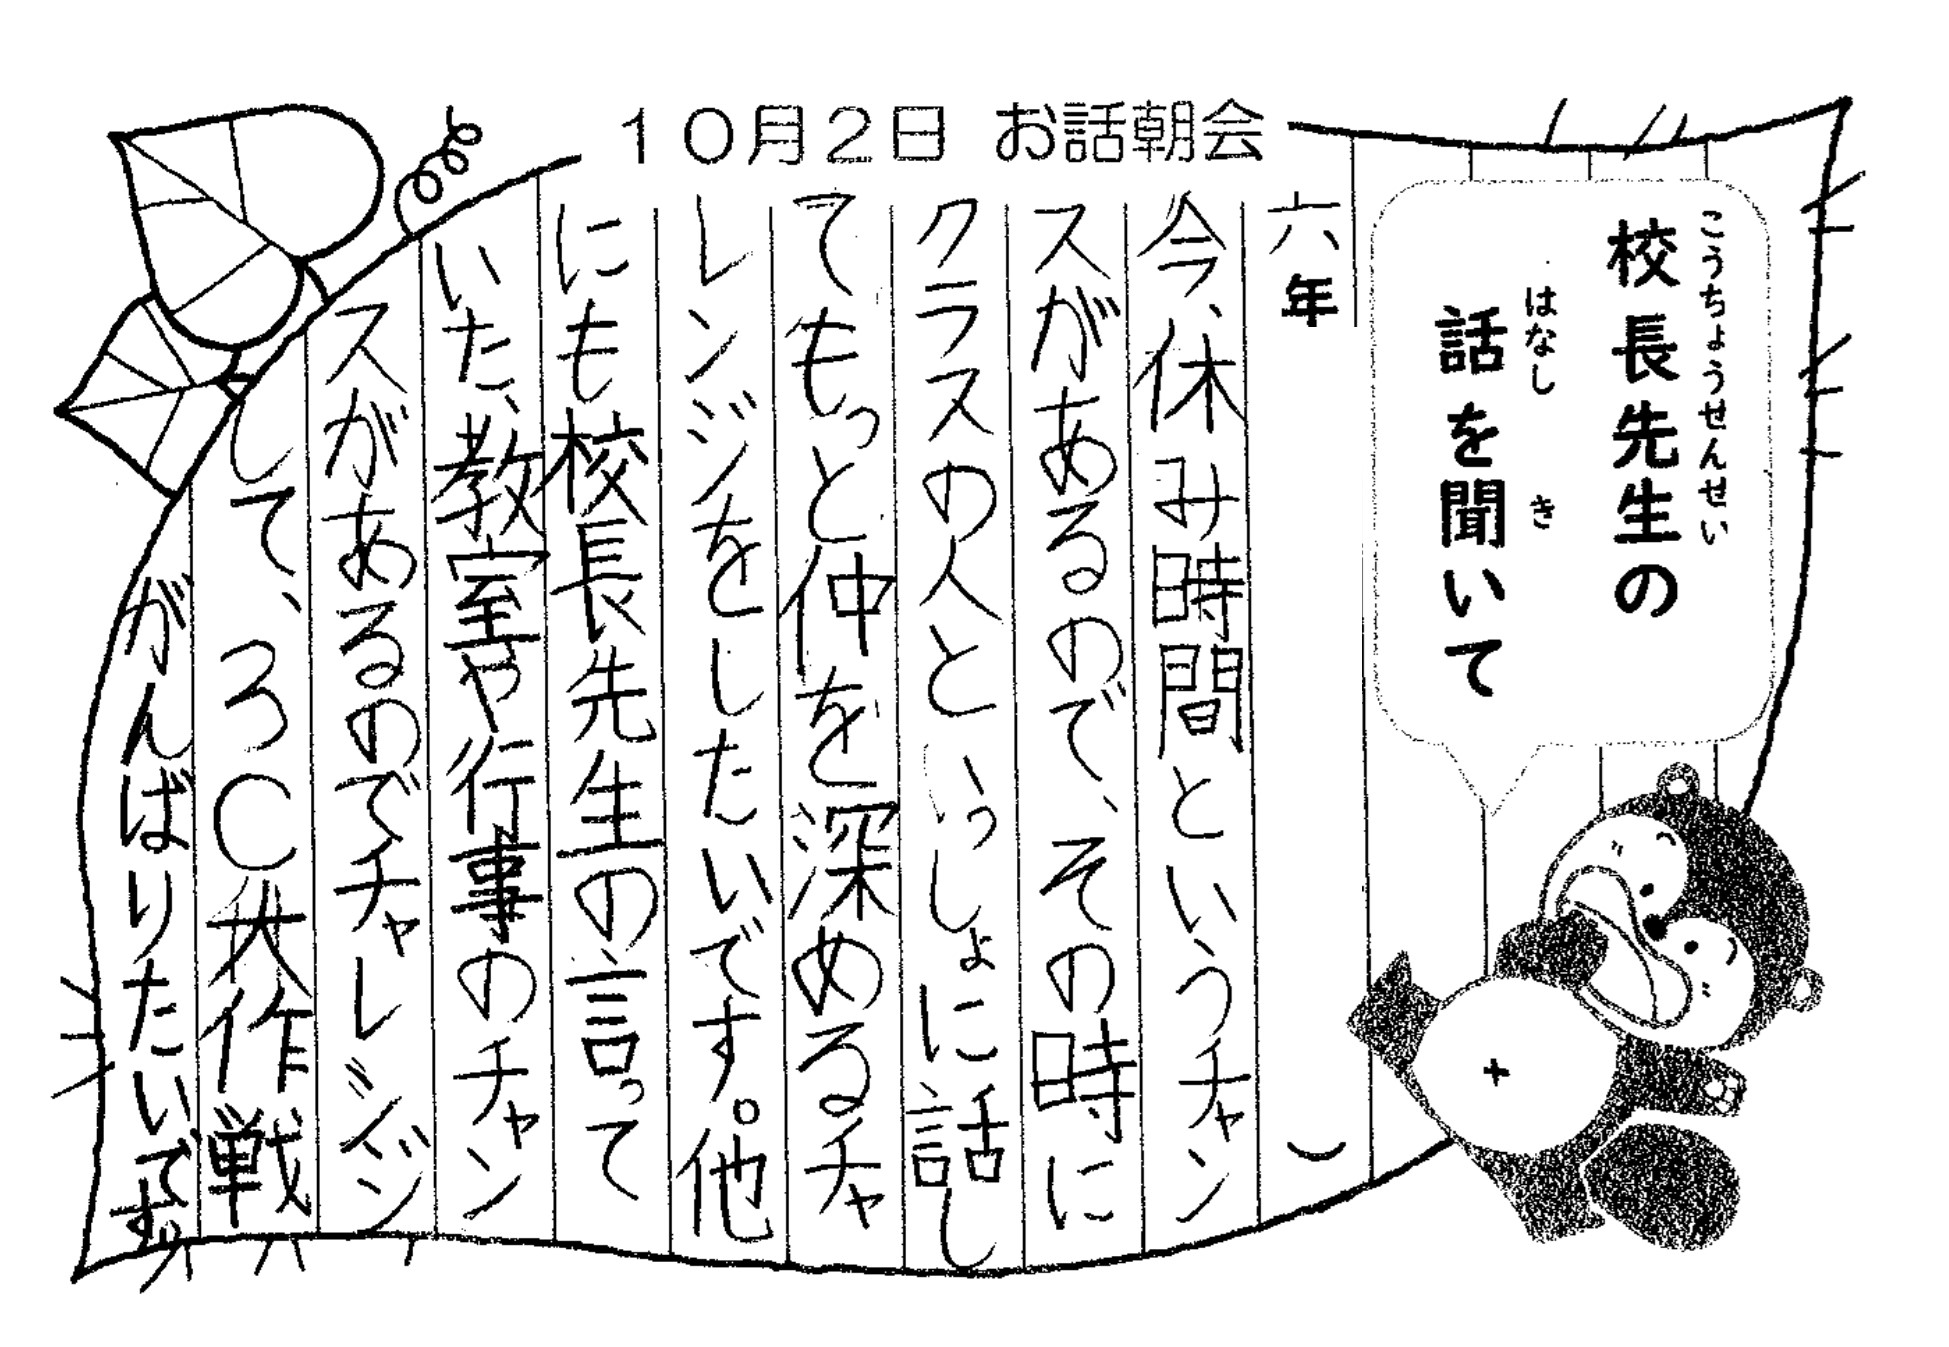 10月2日 お話朝会
こうちょうせんせい
校長先生の
はなし き
話を聞いて
六年
今、休み時間というチャン
スがあるので、その時に
クラスの人といっしょに話し
てもっと仲を深めるチャ
レンジをしたいです。他
にも校長先生の言って
いた、教室や行事のチャン
スがあるのでチャレンジ
して、3C大作戦
がんばりたいです。